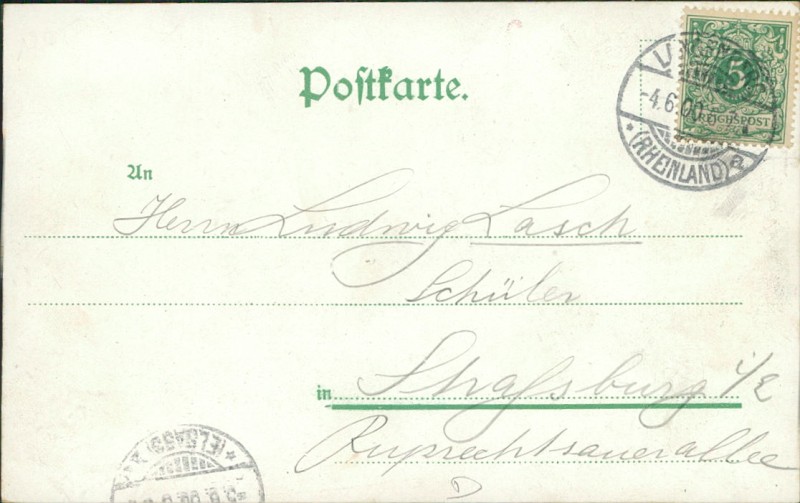 Postkarte.
5
REICHSPOST
-4.6.00
(RHEINLAND)
An
Herrn Ludwig Lasch
Schüler
in Straßburg i/E
Ruprechtsauerallee
(ELSASS)